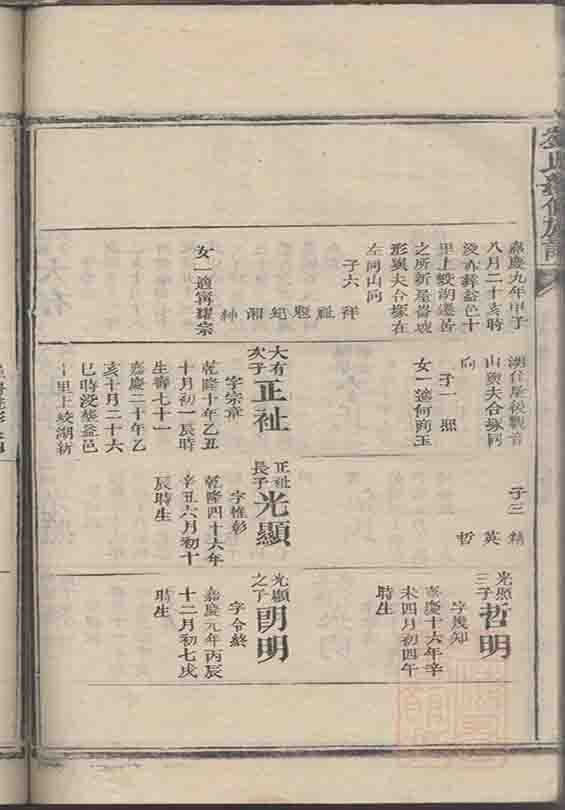 嘉慶九年甲子
八月二十亥時
歿亦葬益邑十
里上鮫湖遷居
之所新屋崙坡
形與夫合塚在
左同山向
子六
祥祉 紀湘紳
女一適甯耀宗
湖仔屋後觀音
山與夫合塚同
向
子一 熙
女一適何商玉
大有
次子
正祉
字宗章
乾隆十年乙丑
十月初一辰時
生壽七十一
嘉慶二十年乙
亥十月二十六
巳時歿葬益邑
十里上鮫湖新
子三 精
英
哲
正祉
長子
光顯
字惟彰
乾隆四十六年
辛丑六月初十
辰時生
光顯
三子
哲明
字幾知
嘉慶十六年辛
未四月初四午
時生
光顯
之子
朗明
字令終
嘉慶元年丙辰
十二月初七戌
時生